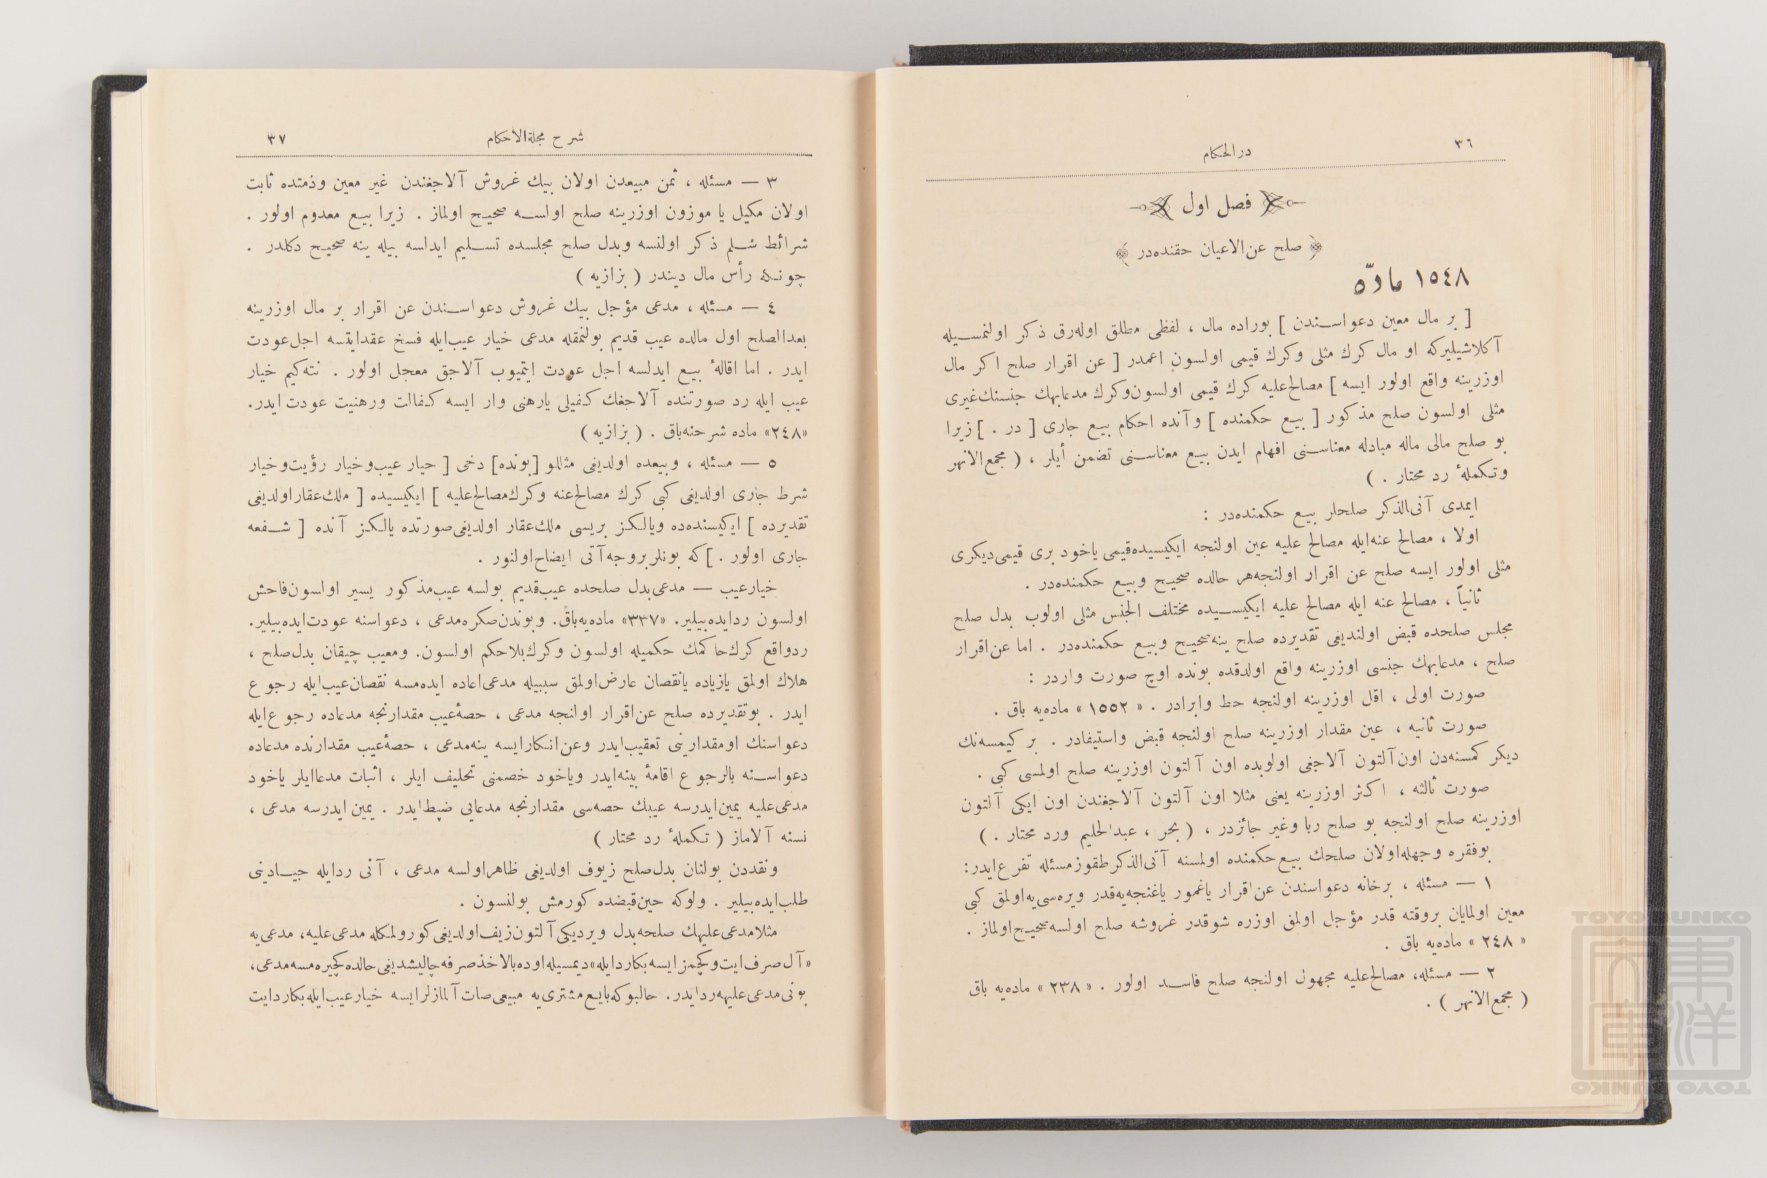 ٣٦
دررالحكام
فصل اول
صلح عن الاعيان حقنده‌در
١٥٤٨ مادّه
[ بر مال معين دعواسندن ] بوراده مال ، لفظى مطلق اوله‌رق ذكر اولنمسيله
آكلاشيليركه او مال كرك مثلى وكرك قيمى اولسون اعمدر [ عن اقرار صلح اكر مال
اوزرينه واقع اولور ايسه ] مصالح‌عليه كرك قيمى اولسون‌وكرك مدعابهك جنسنك‌غيرى
مثلى اولسون صلح مذكور [ بيع حكمنده ] وآنده احكام بيع جارى [ در . ] زيرا
بو صلح مالى ماله مبادله معناسنى افهام ايدن بيع معناسنى تضمن ايلر ، ( مجمع‌الانهر
وتكملهٔ رد محتار . )
ايمدى آتى‌الذكر صلحلر بيع حكمنده‌در :
اولا ، مصالح عنه‌ايله مصالح عليه عين اولنجه ايكيسيده‌قيمى ياخود برى قيمى‌ديكرى
مثلى اولور ايسه صلح عن اقرار اولنجه‌هر حالده صحيح وبيع حكمنده‌در .
ثانياً ، مصالح عنه ايله مصالح عليه ايكيسيده مختلف الجنس مثلى اولوب بدل صلح
مجلس صلحده قبض اولنديغى تقديرده صلح ينه‌صحيح وبيع حكمنده‌در . اما عن‌اقرار
صلح ، مدعابهك جنسى اوزرينه واقع اولدقده بونده اوچ صورت واردر :
صورت اولى ، اقل اوزرينه اولنجه حط وابرادر . « ١٥٥٢ » ماده‌يه باق .
صورت ثانيه ، عين مقدار اوزرينه صلح اولنجه قبض واستيفادر . بر كيمسه‌نك
ديكر كمسنه‌دن اون‌آلتون آلاجغى اولوبده اون آلتون اوزرينه صلح اولمسى كبى .
صورت ثالثه ، اكثر اوزرينه يعنى مثلا اون آلتون آلاجغندن اون ايكى آلتون
اوزرينه صلح اولنجه بو صلح ربا وغير جائزدر ، ( بحر ، عبدالحليم ورد محتار . )
بوفقره وجهله‌اولان صلحك بيع‌حكمنده اولمسنه آتى‌الذكر طقوزمسئله تفرع‌ايدر:
١ — مسئله ، برخانه دعواسندن عن‌اقرار ياغمور ياغنجه‌يه‌قدر ويره‌سى‌يه‌اولمق كبى
معين اولمايان بروقته قدر مؤجل اولمق اوزره شوقدر غروشه صلح اولسه‌صحيح‌اولماز .
« ٢٤٨ » ماده‌يه باق .
٢ — مسئله، مصالح‌عليه مجهول اولنجه صلح فاسد اولور . « ٢٣٨ » ماده‌يه باق
( مجمع‌الانهر ) .
شرح مجلةالاحكام
٣٧
٣ — مسئله ، ثمن مبيعدن اولان بيك غروش آلاجغندن غير معين وذمتده ثابت
اولان مكيل يا موزون اوزرينه صلح اولسه صحيح اولماز . زيرا بيع معدوم اولور .
شرائط سلم ذكر اولنسه وبدل صلح مجلسده تسليم ايداسه بيله ينه صحيح دكلدر .
چونكه رأس مال ديندر ( بزازيه )
٤ — مسئله ، مدعى مؤجل بيك غروش دعواسندن عن اقرار بر مال اوزرينه
بعدالصلح اول مالده عيب قديم بولنمقله مدعى خيار عيب‌ايله فسخ عقدايتسه اجل‌عودت
ايدر . اما اقالهٔ بيع ايدلسه اجل عودت ايتميوب آلاجق معجل اولور . نته‌كيم خيار
عيب ايله رد صورتنده آلاجغك كفيلى يارهنى وار ايسه كفالت ورهنيت عودت ايدر.
«٢٤٨» ماده شرحنه‌باق . ( بزازيه )
٥ — مسئله ، وبيعده اولديغى مثللو [بونده] دخى [ خيار عيب‌وخيار رؤيت‌وخيار
شرط جارى اولديغى كبى كرك مصالح‌عنه وكرك‌مصالح‌عليه ] ايكيسيده [ ملك‌عقاراولديغى
تقديرده ] ايكيسنده‌ده ويالكز بريسى ملك‌عقار اولديغى‌صورتده يالكز آنده [ شفعه
جارى اولور . ] كه بونلربروجه‌آتى ايضاح‌اولنور .
خيارعيب — مدعى‌بدل صلحده عيب‌قديم بولسه عيب‌مذكور يسير اولسون‌فاحش
اولسون ردايده‌بيلير. «٣٣٧» ماده‌يه‌باق. وبوندن‌صكره‌مدعى ، دعواسنه عودت‌ايده‌بيلير.
ردواقع كرك‌حاكمك حكميله اولسون وكرك‌بلاحكم اولسون. ومعيب چيقان بدل‌صلح ،
هلاك اولمق يازياده يانقصان عارض‌اولمق سببيله مدعى‌اعاده ايده‌مسه نقصان‌عيب‌ايله رجوع
ايدر . بوتقديرده صلح عن‌اقرار اولنجه مدعى ، حصهٔ‌عيب مقدارنجه مدعاده رجوع‌ايله
دعواسنك اومقدارينى تعقيب‌ايدر وعن‌انكارايسه ينه‌مدعى ، حصهٔ‌عيب مقدارنده مدعاده
دعواسنه بالرجوع اقامهٔ بينه‌ايدر وياخود خصمنى تحليف ايلر ، اثبات مدعاايلر ياخود
مدعى‌عليه يمين‌ايدرسه عيبك حصه‌سى مقدارنجه مدعابى ضبط‌ايدر . يمين ايدرسه مدعى ،
نسنه آلاماز ( تكملهٔ رد محتار )
ونقددن بولنان بدل‌صلح زيوف اولديغى ظاهراولسه مدعى ، آنى ردايله جيادينى
طلب‌ايده‌بيلير . ولوكه حين‌قبضده كورمش بولنسون .
مثلامدعى‌عليهك صلحه‌بدل ويرديكى‌آلتون‌زيف‌اولديغى‌كورولمكله مدعى‌عليه، مدعى‌يه
«آل‌صرف‌ايت‌وكچمز ايسه‌بكاردايله» ديمسيله‌اوده‌بالاخذ صرفه‌چاليشديغى‌حالده‌كچيره‌مسه‌مدعى،
بونى‌مدعى‌عليهه‌ردايدر. حالبوكه‌بايع‌مشترى‌يه مبيعى‌صات‌آلمازلرايسه خيارعيب‌ايله‌بكاردايت
TOYO BUNKO
東洋文庫
TOYO BUNKO